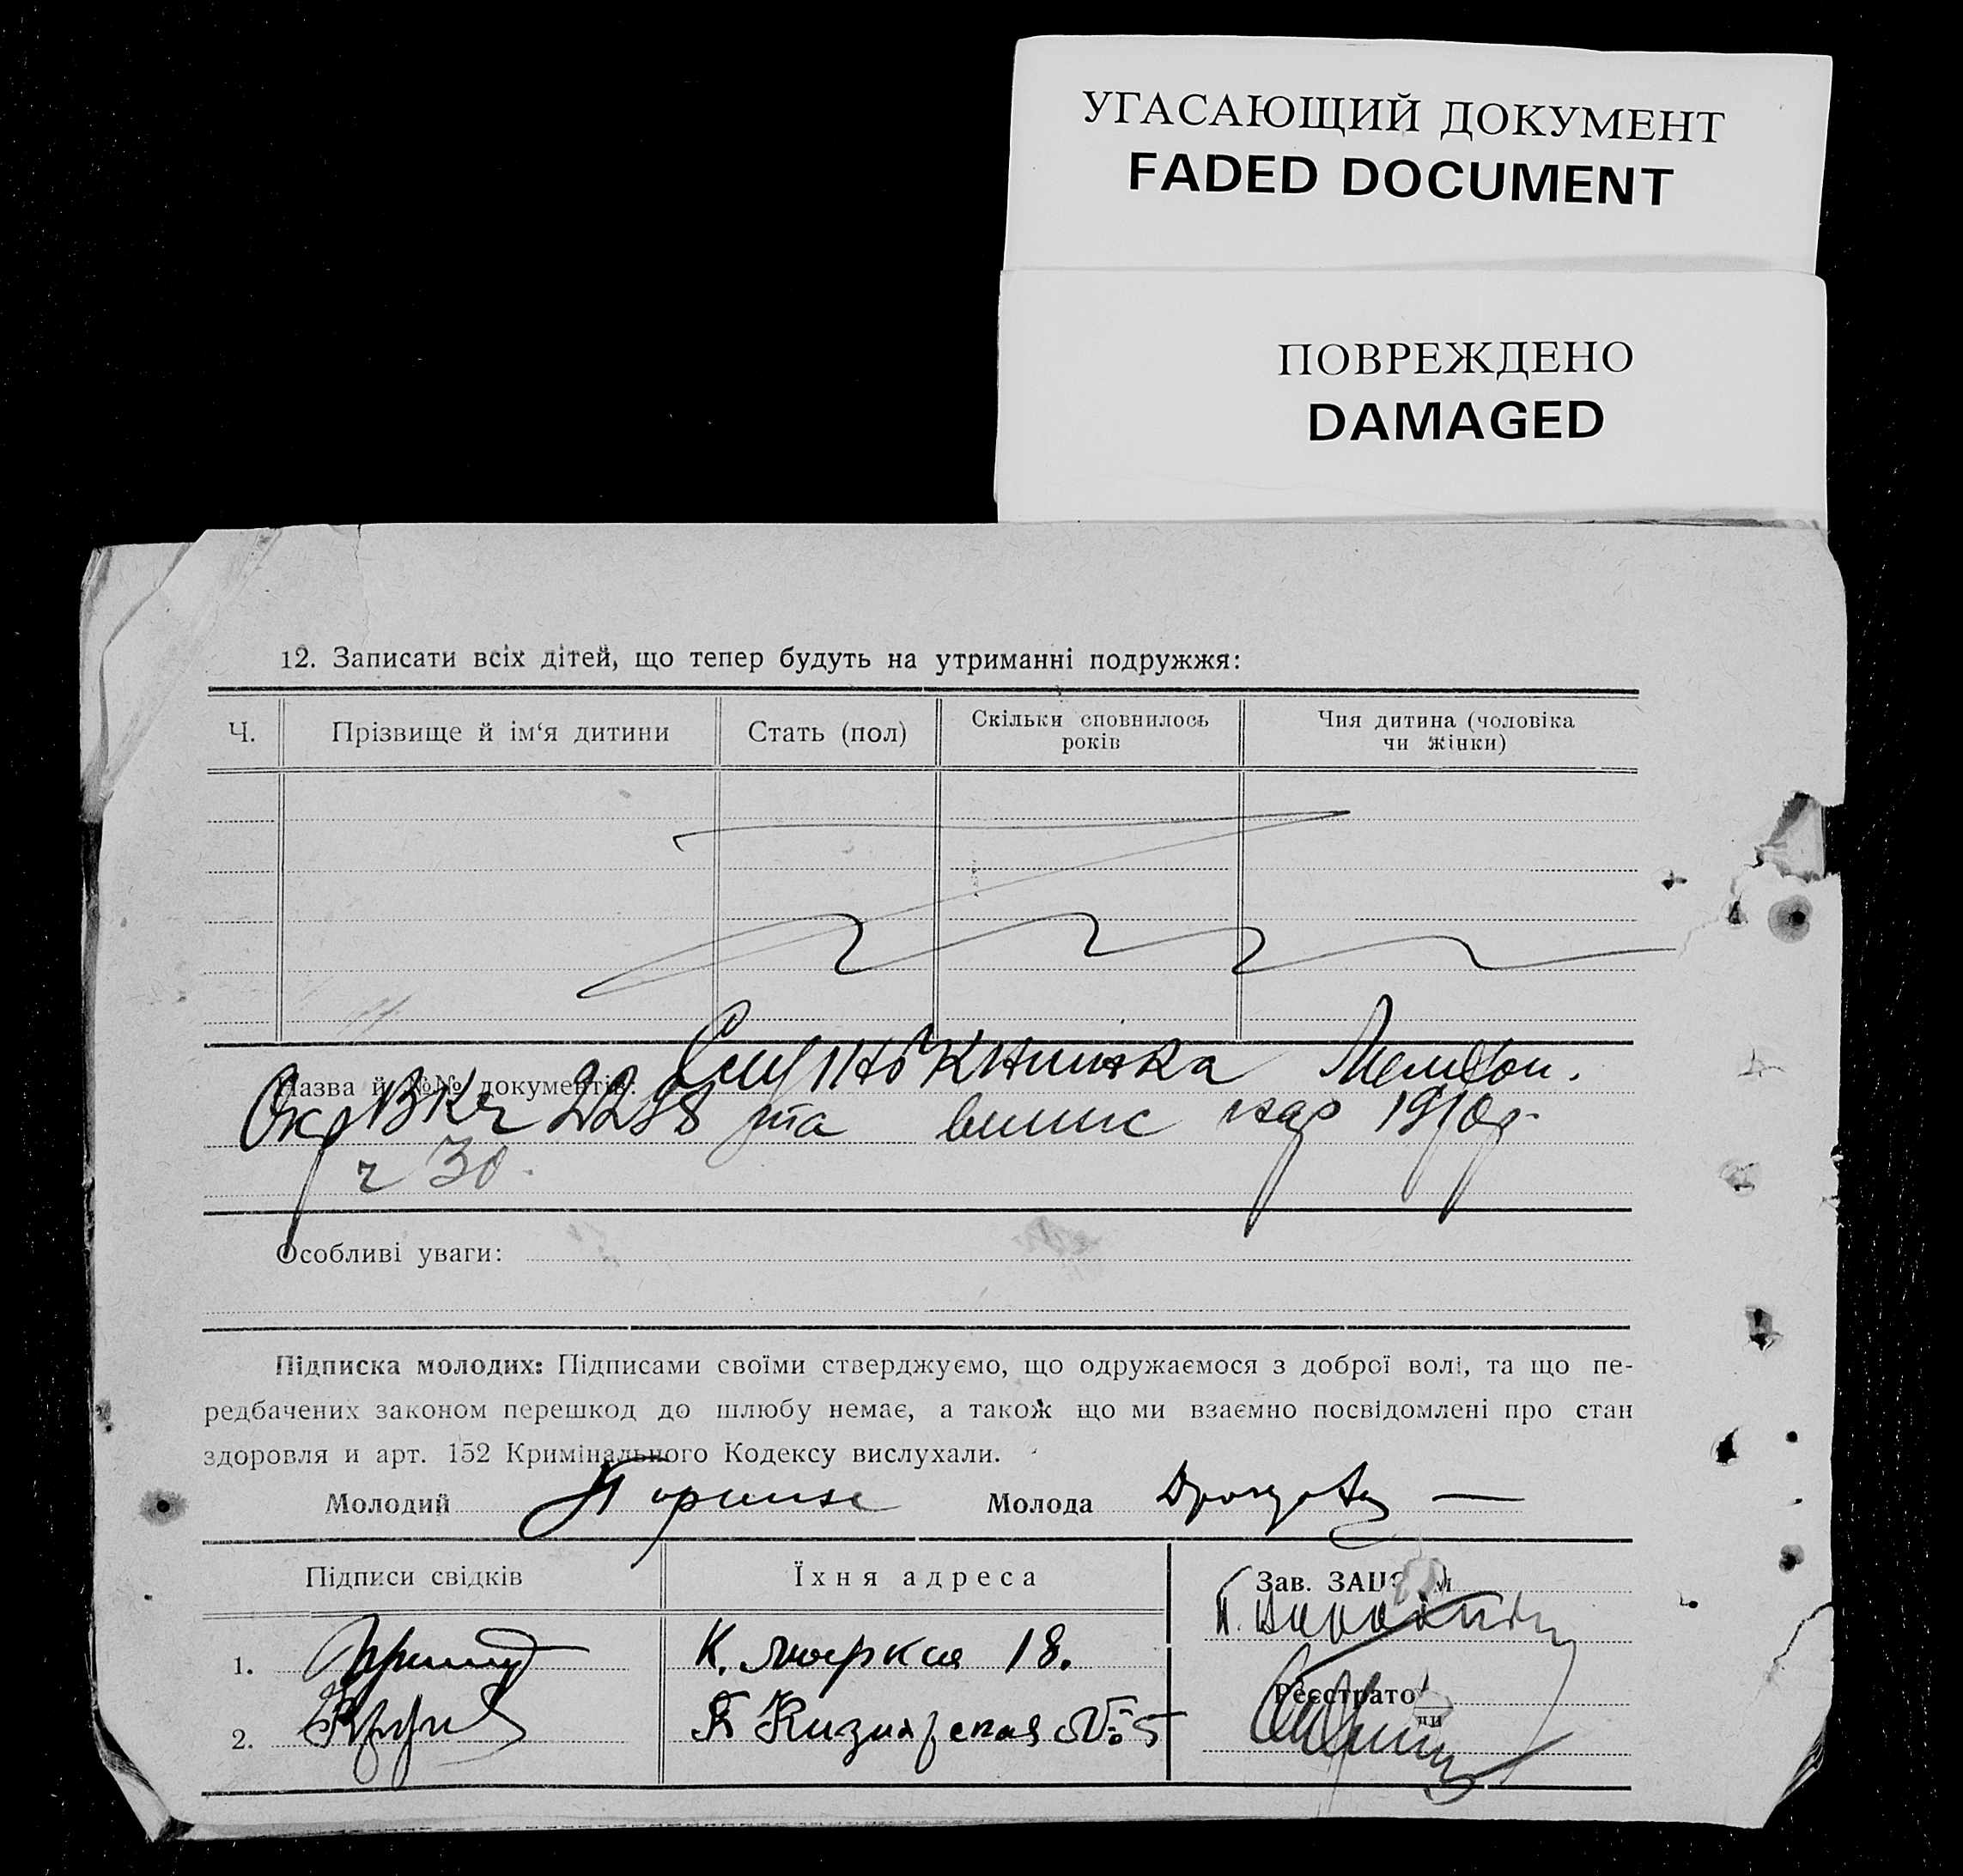 УГАСАЮЩИЙ ДОКУМЕНТ
FADED DOCUMENT
ПОВРЕЖДЕНО
DAMAGED
12. Записати всіх дітей, що тепер будуть на утриманні подружжя:
Ч.
Прізвище й ім‘я дитини
Стать (пол)
Скільки сповнилось
років
Чия дитина (чоловіка
чи жінки)
Назва й №№ документів:
книжка
та випис 1910
ч 30.
Особливі уваги:
Підписка молодих: Підписами своїми стверджуємо, що одружаємося з доброї волі, та що пе-
редбачених законом перешкод до шлюбу немає, а також що ми взаємно посвідомлені про стан
здоровля и арт. 152 Кримінального Кодексу вислухали.
Молодий
Молода
Підписи свідків
Їхня адреса
Зав.
1.
К. Маркса 18.
2.
Кизиярская № 5